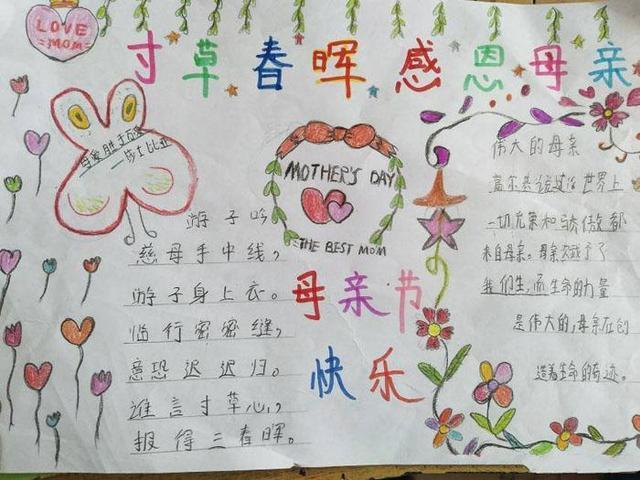 LOVE
MOM
寸草春晖感恩母亲
母爱胜于
——莎士比亚
MOTHER'S DAY
THE BEST MOM
游子吟
慈母手中线，
游子身上衣。
临行密密缝，
意恐迟迟归。
谁言寸草心，
报得三春晖。
母亲节
快乐
伟大的母亲
高尔基说过：世界上
一切光荣和骄傲都
来自母亲。母亲赋予了
我们生，而生命的力量
是伟大的，母亲在创
造着生命的奇迹。